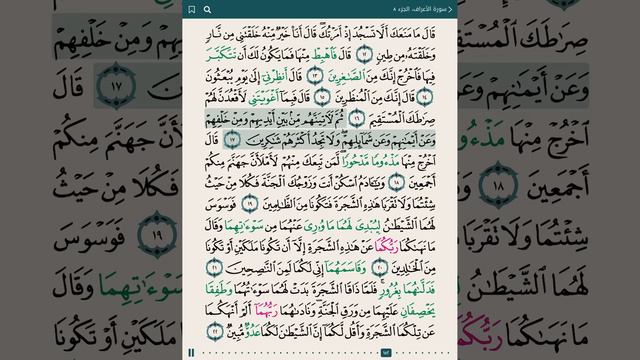 سورة الأعراف، الجزء ٨
قَالَ مَا مَنَعَكَ أَلَّا تَسْجُدَ إِذْ أَمَرْتُكَ ۖ قَالَ أَنَا۠ خَيْرٌ مِّنْهُ خَلَقْتَنِى مِن نَّارٍ
وَخَلَقْتَهُۥ مِن طِينٍ ١٢ قَالَ فَٱهْبِطْ مِنْهَا فَمَا يَكُونُ لَكَ أَن تَتَكَبَّرَ
فِيهَا فَٱخْرُجْ إِنَّكَ مِنَ ٱلصَّـٰغِرِينَ ١٣ قَالَ أَنظِرْنِىٓ إِلَىٰ يَوْمِ يُبْعَثُونَ
١٤ قَالَ إِنَّكَ مِنَ ٱلْمُنظَرِينَ ١٥ قَالَ فَبِمَآ أَغْوَيْتَنِى لَأَقْعُدَنَّ لَهُمْ
صِرَٰطَكَ ٱلْمُسْتَقِيمَ ١٦ ثُمَّ لَـَٔاتِيَنَّهُم مِّنۢ بَيْنِ أَيْدِيهِمْ وَمِنْ خَلْفِهِمْ
وَعَنْ أَيْمَـٰنِهِمْ وَعَن شَمَآئِلِهِمْ ۖ وَلَا تَجِدُ أَكْثَرَهُمْ شَـٰكِرِينَ ١٧ قَالَ
ٱخْرُجْ مِنْهَا مَذْءُومًا مَّدْحُورًا ۖ لَّمَن تَبِعَكَ مِنْهُمْ لَأَمْلَأَنَّ جَهَنَّمَ مِنكُمْ
أَجْمَعِينَ ١٨ وَيَـٰٓـَٔادَمُ ٱسْكُنْ أَنتَ وَزَوْجُكَ ٱلْجَنَّةَ فَكُلَا مِنْ حَيْثُ
شِئْتُمَا وَلَا تَقْرَبَا هَـٰذِهِ ٱلشَّجَرَةَ فَتَكُونَا مِنَ ٱلظَّـٰلِمِينَ ١٩ فَوَسْوَسَ
لَهُمَا ٱلشَّيْطَـٰنُ لِيُبْدِىَ لَهُمَا مَا وُۥرِىَ عَنْهُمَا مِن سَوْءَٰتِهِمَا وَقَالَ
مَا نَهَىٰكُمَا رَبُّكُمَا عَنْ هَـٰذِهِ ٱلشَّجَرَةِ إِلَّآ أَن تَكُونَا مَلَكَيْنِ أَوْ تَكُونَا
مِنَ ٱلْخَـٰلِدِينَ ٢٠ وَقَاسَمَهُمَآ إِنِّى لَكُمَا لَمِنَ ٱلنَّـٰصِحِينَ ٢١
فَدَلَّىٰهُمَا بِغُرُورٍ ۚ فَلَمَّا ذَاقَا ٱلشَّجَرَةَ بَدَتْ لَهُمَا سَوْءَٰتُهُمَا وَطَفِقَا
يَخْصِفَانِ عَلَيْهِمَا مِن وَرَقِ ٱلْجَنَّةِ ۖ وَنَادَىٰهُمَا رَبُّهُمَآ أَلَمْ أَنْهَكُمَا
عَن تِلْكُمَا ٱلشَّجَرَةِ وَأَقُل لَّكُمَآ إِنَّ ٱلشَّيْطَـٰنَ لَكُمَا عَدُوٌّ مُّبِينٌ ٢٢
١٥٢